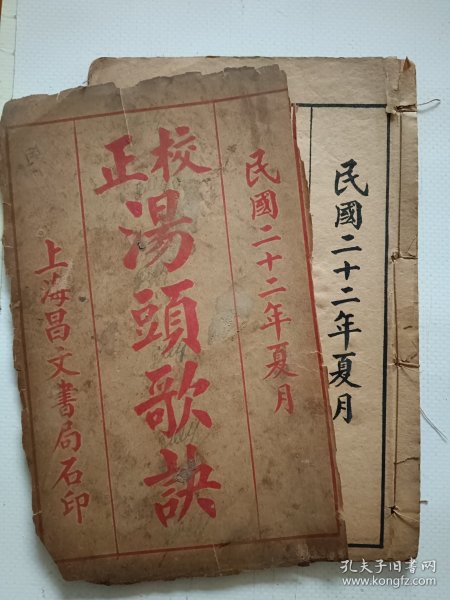 民國二十二年夏月
校正
湯頭歌訣
上海昌文書局石印
民國二十二年夏月
孔夫子旧书网
www.kongfz.com